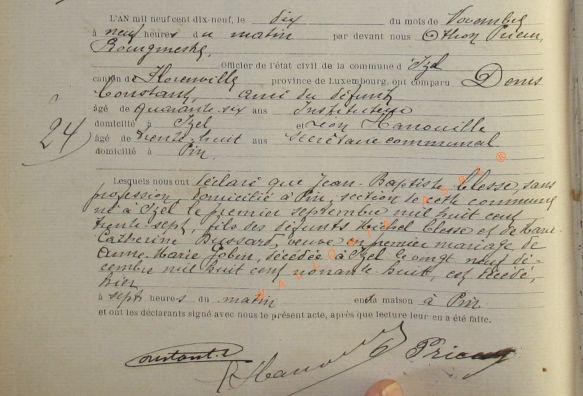 L'AN mil neuf cent dix-neuf, le dix du mois de Novembre
à neuf heures du matin par devant nous Othon Prieur,
Bourgmestre
Officier de l'état civil de la commune d'Izel
canton de Florenville province de Luxembourg, ont comparu Denis
Constant, ami du défunt
âgé de quarante six ans Instituteur
domicilié à Izel et Léon Hanouille
24
âgé de trente huit ans secrétaire communal
domicilié à Pin
Lesquels nous ont déclaré que Jean-Baptiste Clesse, sans
profession domicilié à Pin, section de cette commune
né à Izel le premier septembre mil huit cent
trente-sept, fils des défunts Michel Clesse et de Marie
Catherine veuve en premier mariage de
Anne-Marie Gobin, décédée à Izel le vingt neuf dé-
cembre mil huit cent nonante huit, est décédé,
hier
à sept heures du matin en sa maison à Pin
et ont les déclarants signé avec nous le présent acte, après que lecture leur en a été faite.
Constant D
LHanouille
Prieur